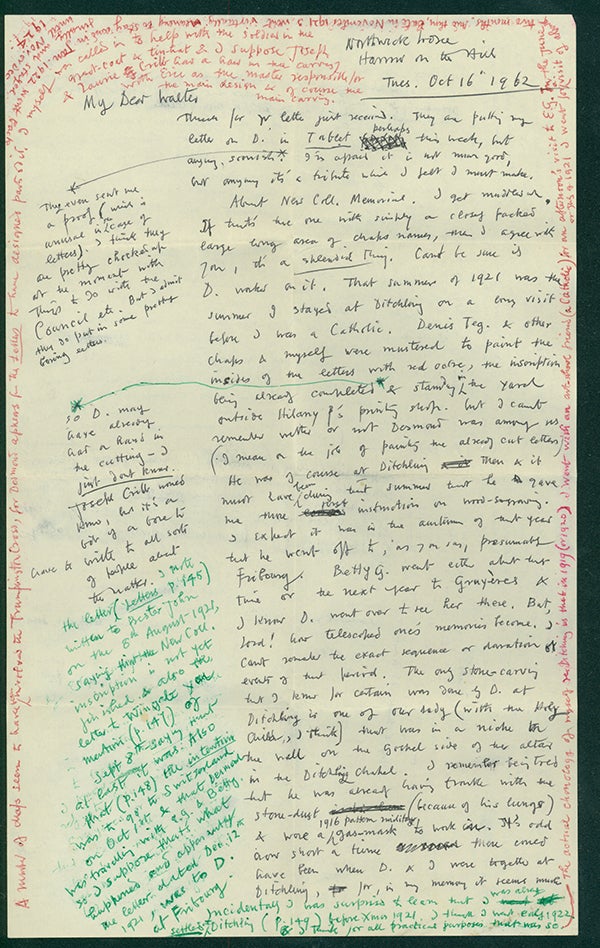 Northwick Lodge
Harrow on the Hill
Tues. Oct 16th 1962
My Dear Walter
Thanks for yr letter just received. They are putting my
letter on D. in Tablet perhaps this week, but
anyway sometime. I'm afraid it is not much good,
but anyway it's a tribute which I felt I must make.
About New Coll. Memorial. I get muddled.
If that's the one with simply a closely packed
large long area of chaps names, then I agree with
you, it's a splendid thing. Can't be sure if
D. worked on it. That summer of 1921 was the
summer I stayed at Ditchling on a long visit
before I was a Catholic. Denis Teg. & other
chaps & myself were mustered to paint the
insides of the letters with red ochre, the inscription
being already completed & standing in the yard
outside Hilary P's printing shop. but I can't
remember whether or not Desmond was among us
(I mean on the job of painting the already cut letters)
He was of course at Ditchling then & it
must have been during that summer that he gave
me those first instruction on wood-engraving.
I expect it was in the autumn of that year
that he went off to, as you say, presumably
Fribourg. Betty G. went either about that
time or the next year to Gruyeres &
I know D. went over to see her there. But,
Lord! how telescoped one's memories become. I
can't remember the exact sequence or duration of
events of that period. The only stone-carving
that I know for certain was done by D. at
Ditchling is one of our Lady (with the Holy
Child, I think) that was in a niche in
the wall on the Gospel side of the altar
in the Ditchling Chapel. I remember being told
that he was already having trouble with the
stone-dust (because of his lungs)
& wore a 1916 pattern military gas-mask to work in. It's odd
how short a time there could
have been when D. & I were together at
Ditchling, for, in my memory it seems much
They even sent me
a proof (which is
unusual in case of
letters). I think they
are pretty chocked up
at the moment with
things to do with the
Council etc. But I admit
they do put in some pretty
boring letters.
so D. may
have already
had a hand in
the cutting – I
just don't know.
Joseph Cribb would
know, but it's a
bit of a bore to
have to write to all sorts
of people about
the matter. I note
the letter (Letters p.148)
written to Bester John
on the 8th August 1921,
saying that the New Coll.
inscription is not yet
finished & also the
letter to Wingate you
mention (p.147) of
Sept 8th saying that
at last it was. Also
that (p.148) the intention
was to go to Switzerland
on Oct 1st & that Desmond
was travelling with E.G. & Betty.
so I suppose that's what
happened and apparently a
letter dated Dec. 12
1921, was to D.
at Fribourg.
Incidentally I was surprised to learn that I was already
settled in Ditchling (p.149) before Xmas 1921. I think I
& I think for all practical purposes that was so.
I myself was called in to help with the soldier in the
great-coat & tin-hat & I suppose Joseph
& Laurie Cribb had a hand in the carving
with Eric as the master responsible for
the main design & of course the
main carving.
A model of chaps seem to have worked on the Trumpington Cross, for Desmond appears from the Letters to have designed part of it,
The actual chronology of myself & Ditchling is that in 1919 (or 1920) I went with an art-school friend (a Catholic) for an afternoon's visit to E.G.